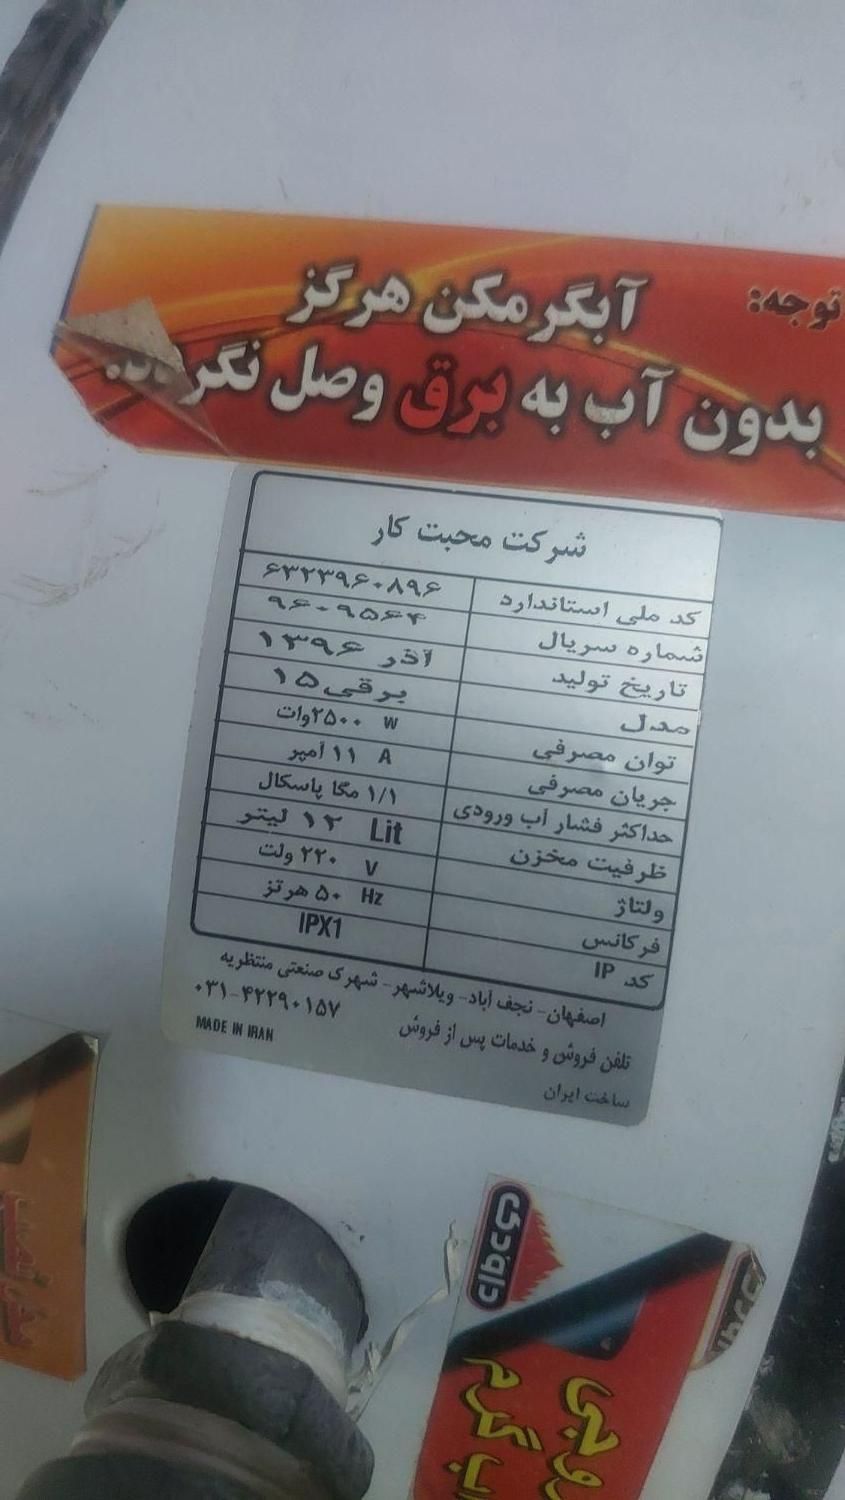 توجه:
آبگرمکن هرگز
بدون آب به برق وصل نگردد.
شرکت محبت کار
کد ملی استاندارد ۶۳۲۳۹۶۰۸۹۶
شماره سریال ۹۶۰۹۵۶۴
تاریخ تولید آذر ۱۳۹۶
مدل برقی ۱۵
توان مصرفی ۲۵۰۰وات W
جریان مصرفی ۱۱ آمپر A
حداکثر فشار آب ورودی ۱/۱ مگا پاسکال
ظرفیت مخزن ۱۲ لیتر Lit
ولتاژ ۲۲۰ ولت V
فرکانس ۵۰ هرتز Hz
کد IP IPX1
اصفهان- نجف آباد- ویلاشهر- شهرک صنعتی منتظریه
تلفن فروش و خدمات پس از فروش ۰۳۱-۴۲۲۹۰۱۵۷
ساخت ایران MADE IN IRAN
آب گرم